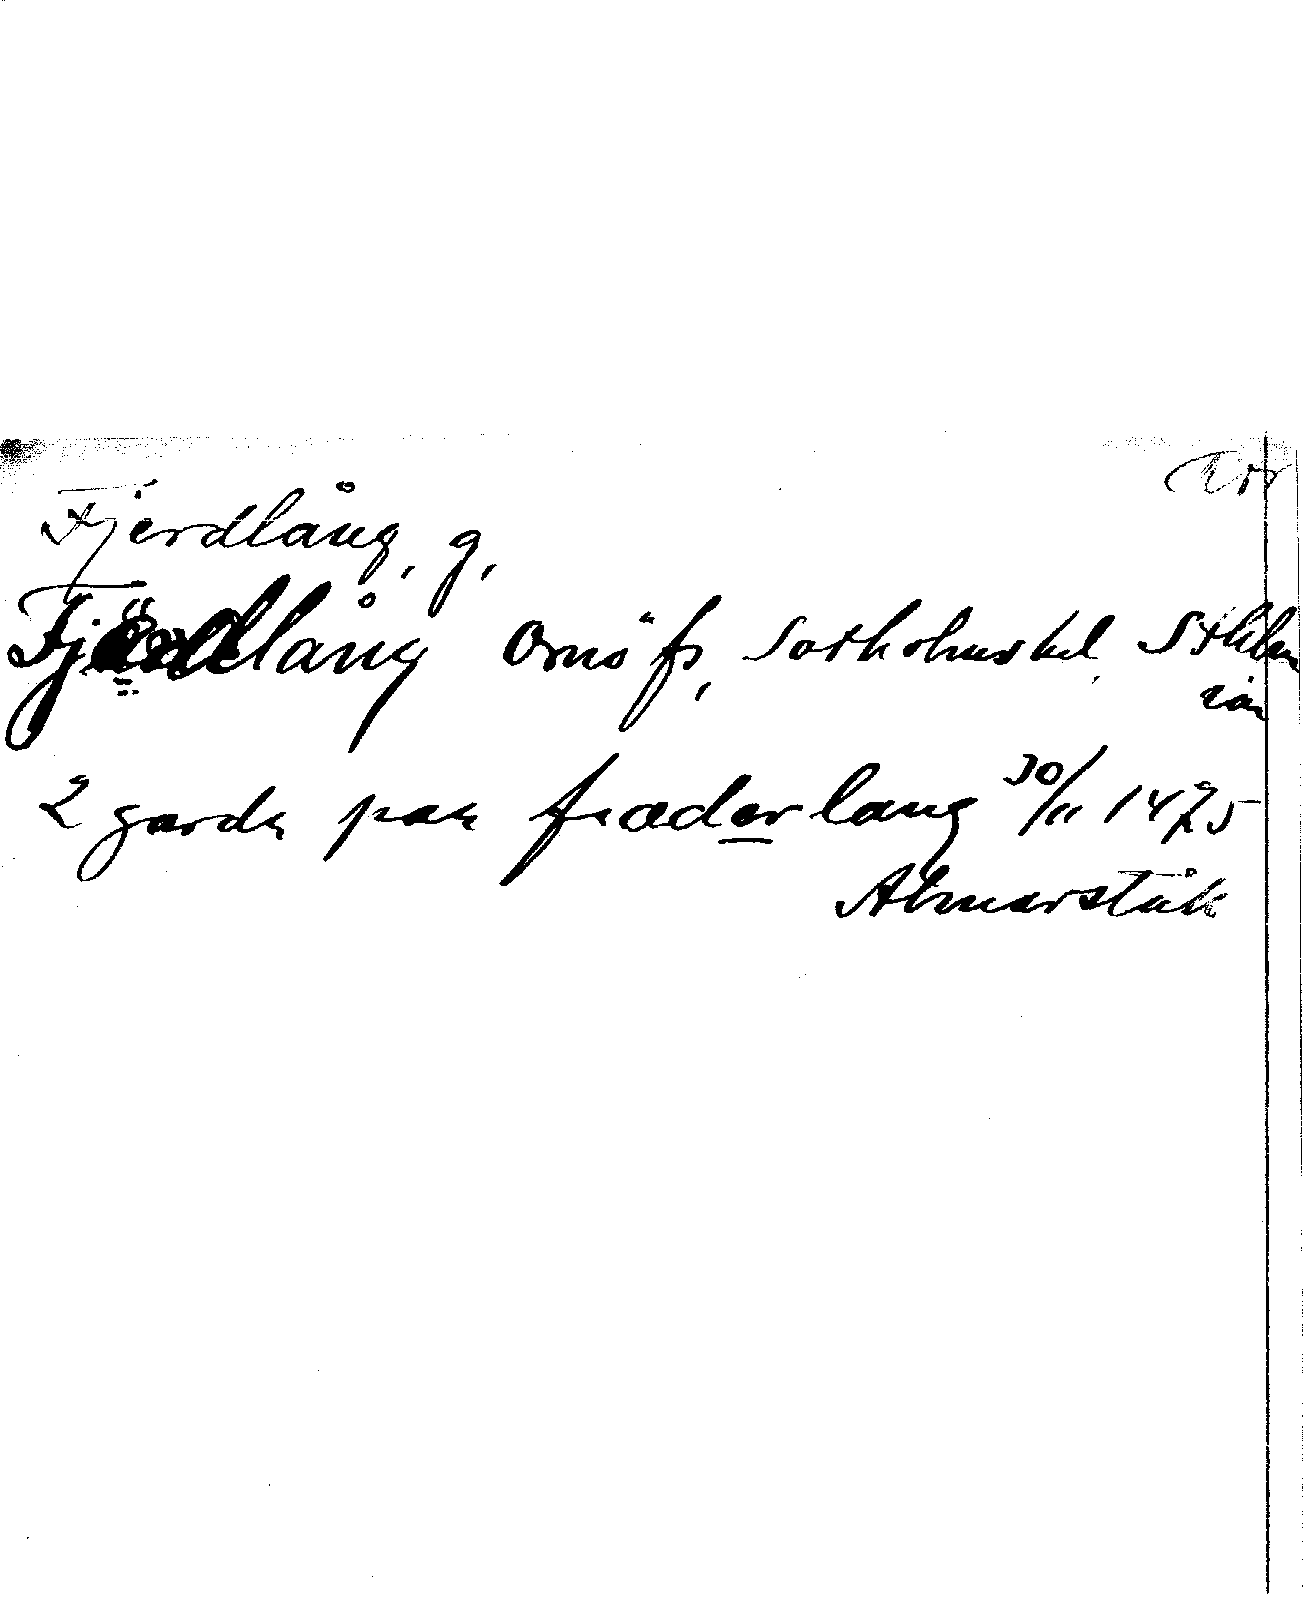 Fjerdlång, g,
Fjärdlång Ornö fs, Sotholms hd. Sthlms
län
2 garda paa fiæderlang 30/11 1475
Almarstäk